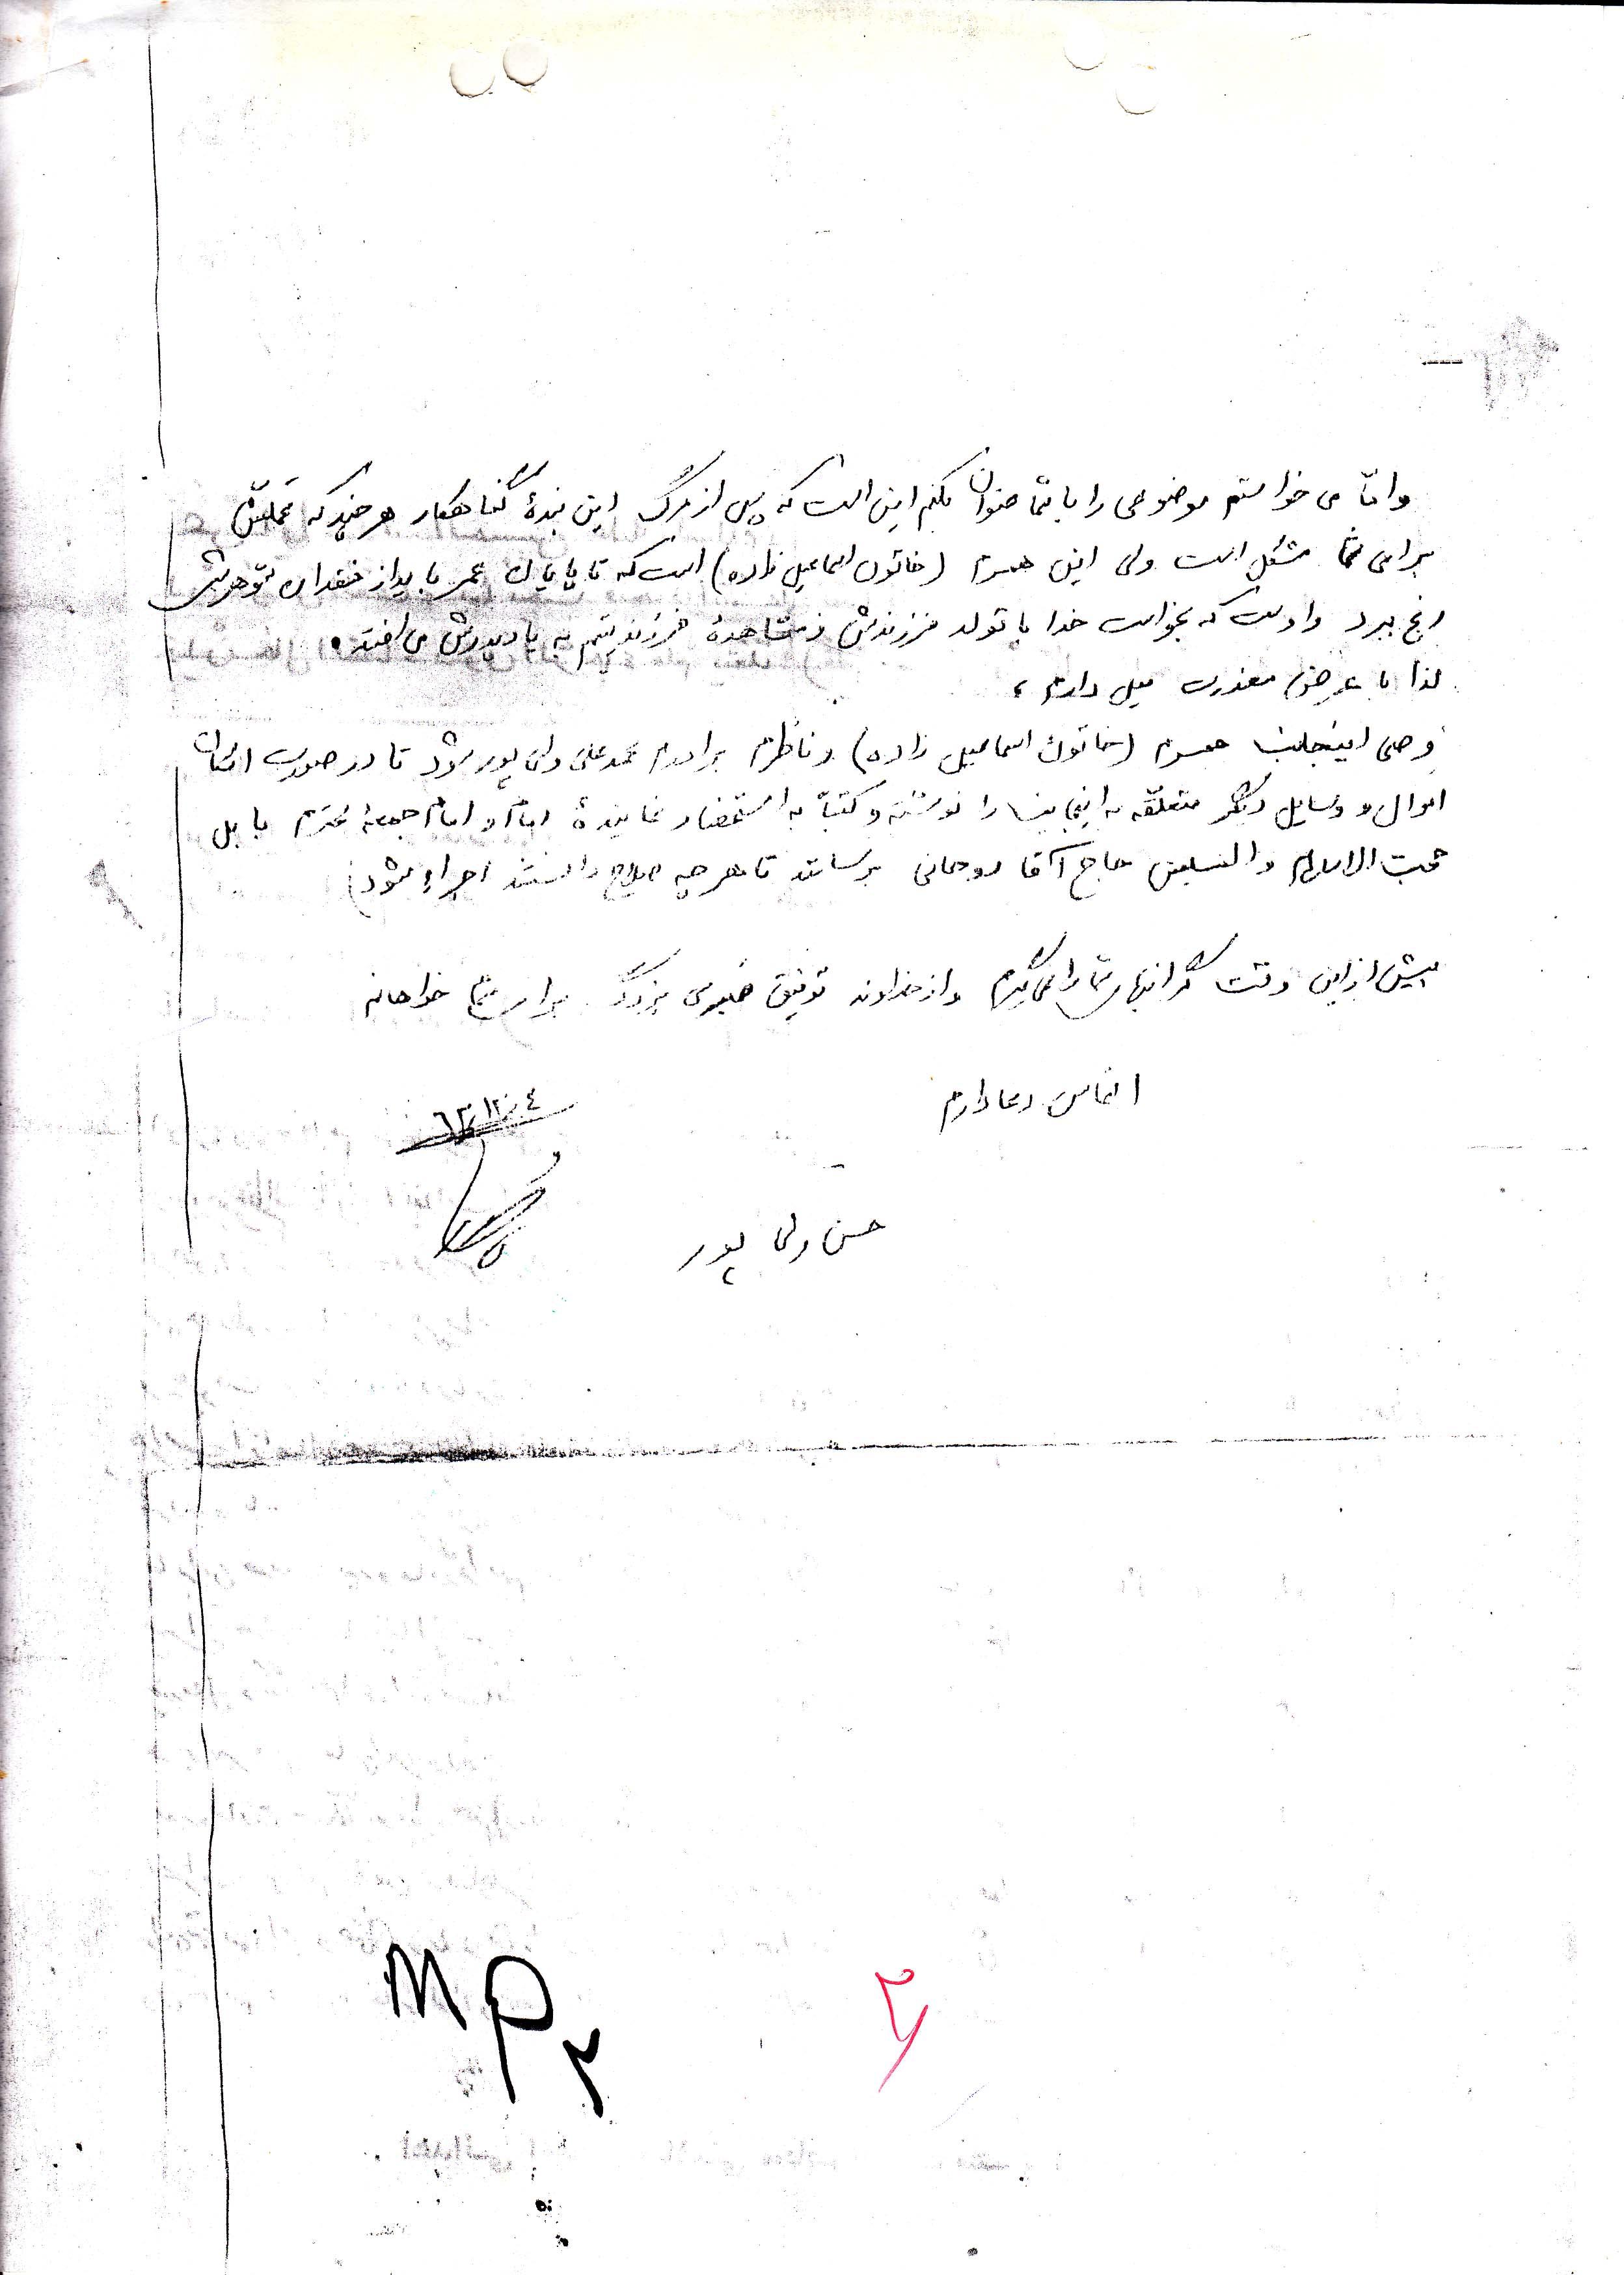 و امّا می خواستم موضوعی را با شما عنوان بکنم این است که پس از مرگ این بندۀ گناهکار هر چند که تحملش
برای شما مشکل است ولی این همسرم (خاتون اسماعیل زاده) است که تا پایان عمر باید از فقدان شوهرش
رنج ببرد و اوست که بخواست خدا با تولد فرزندش و مشاهدۀ فرزند یتیم به یاد پدرش می افتد.
لذا با عرض معذرت میل دارم،
وصی اینجانب همسرم (خاتون اسماعیل زاده) و ناظرم برادرم محمدعلی ولی پور شود تا در صورت امکان
اموال و وسایل دیگر متعلّقه به اینجانب را نوشته و کتباً به استحضار نمایندۀ امام و امام جمعۀ محترم بابل
حجت الاسلام والمسلمین حاج آقا روحانی برسانند تا هر چه صلاح دانستند اجراء شود)
بیش از این وقت گرانبهای شما را نمی گیرم و از خداوند توفیق بزرگ برای شما خواهانم
التماس دعا دارم
٦٣/١٢/٤
حسن ولی پور
MP۲
۲